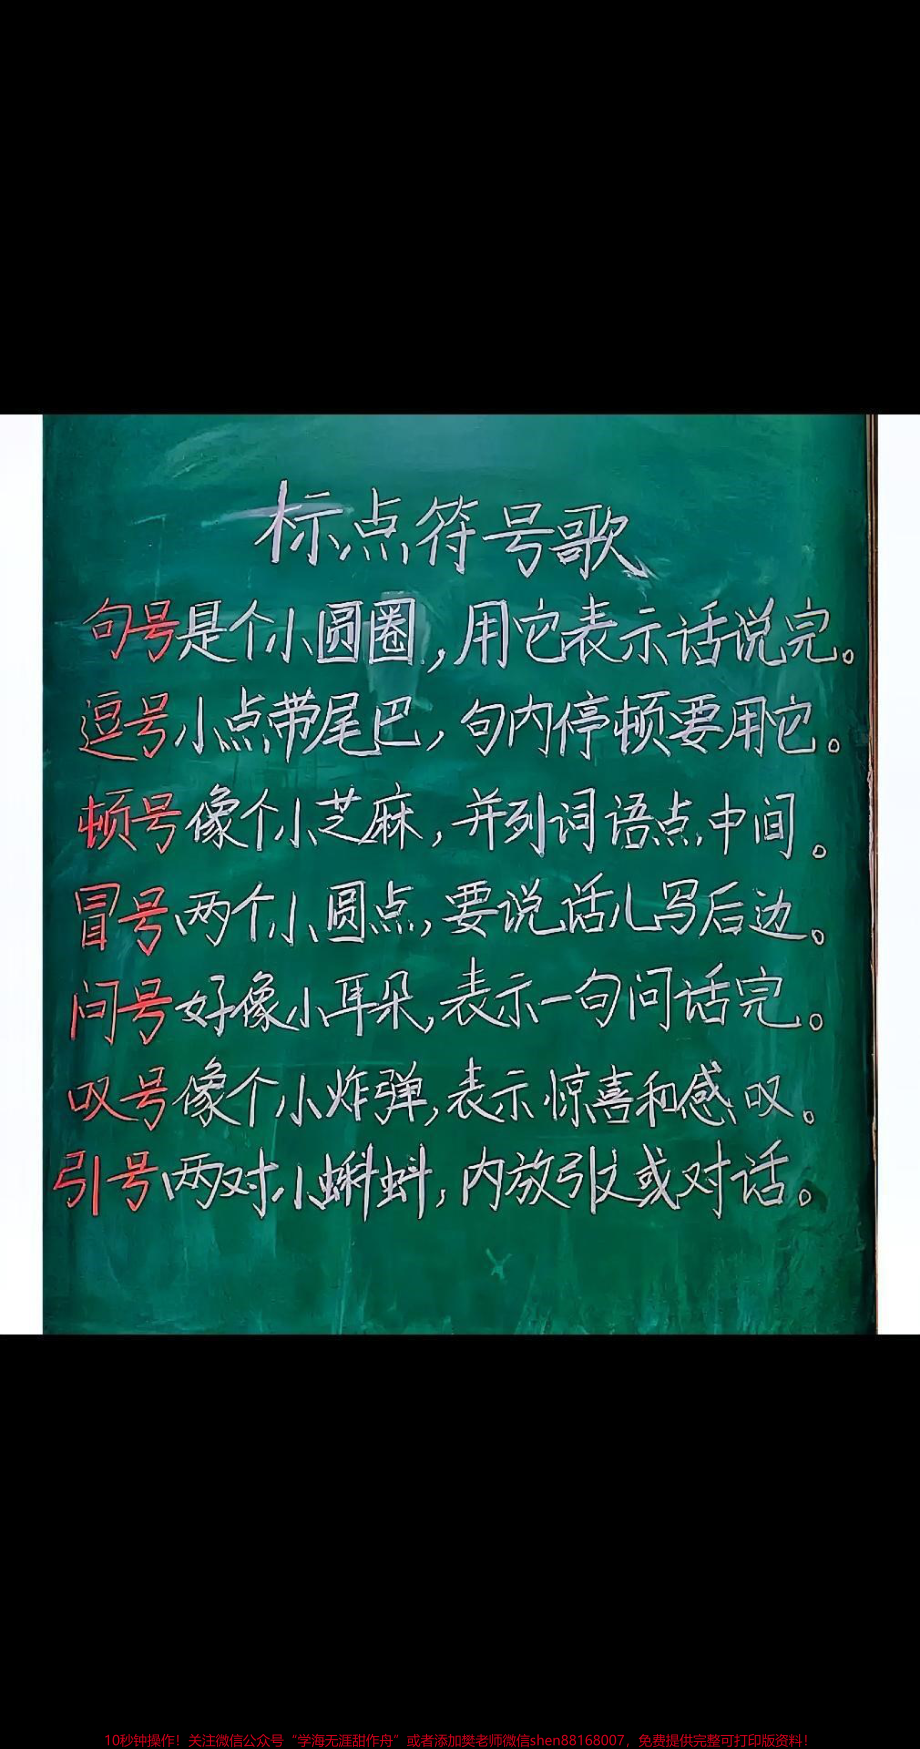 标点符号歌
句号是个小圆圈,用它表示话说完。
逗号小点带尾巴,句内停顿要用它。
顿号像个小芝麻,并列词语点中间。
冒号两个小圆点,要说话儿写后边。
问号好像小耳朵,表示一句问话完。
叹号像个小炸弹,表示惊喜和感叹。
引号两对小蝌蚪,内放引文或对话。
10秒钟操作!关注微信公众号“学海无涯甜作舟”或者添加樊老师微信shen88168007,免费提供完整可打印版资料!